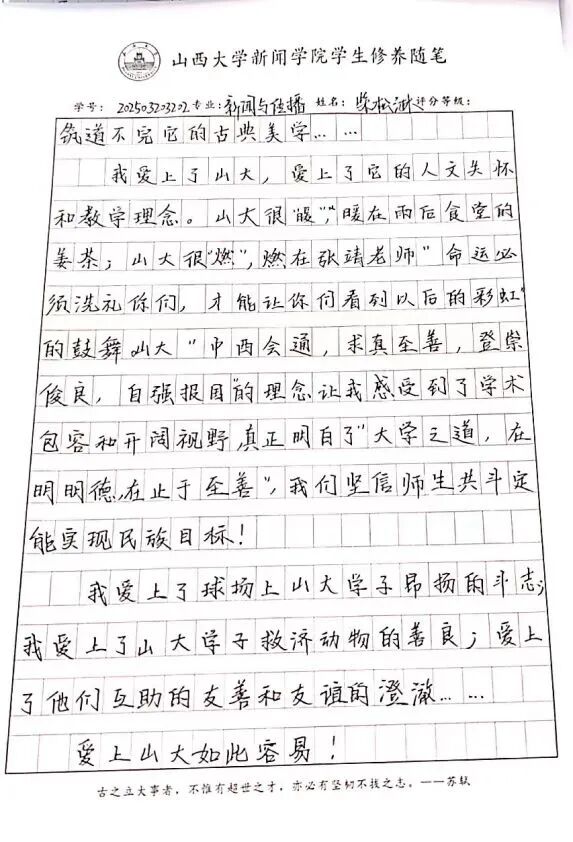 山西大学新闻学院学生修养随笔
学号：202503203202专业：新闻与传播 姓名：柴松 评分等级：
筑道不完它的古典美学……
我爱上了山大，爱上了它的人文关怀
和教学理念。山大很“暖”，暖在雨后食堂的
姜茶；山大很“燃”，燃在张靖老师“命运必
须洗礼你们，才能让你们看到以后的彩虹”
的鼓舞山大“中西会通，求真至善，登崇
俊良，自强报国”的理念让我感受到了学术
包容和开阔视野，真正明白了“大学之道，在
明明德，在止于至善”，我们坚信师生共斗定
能实现民族目标！
我爱上了球场上山大学子昂扬的斗志；
我爱上了山大学子救济动物的善良；爱上
了他们互助的友善和友谊的澄澈……
爱上山大如此容易！
古之立大事者，不惟有超世之才，亦必有坚韧不拔之志。——苏轼